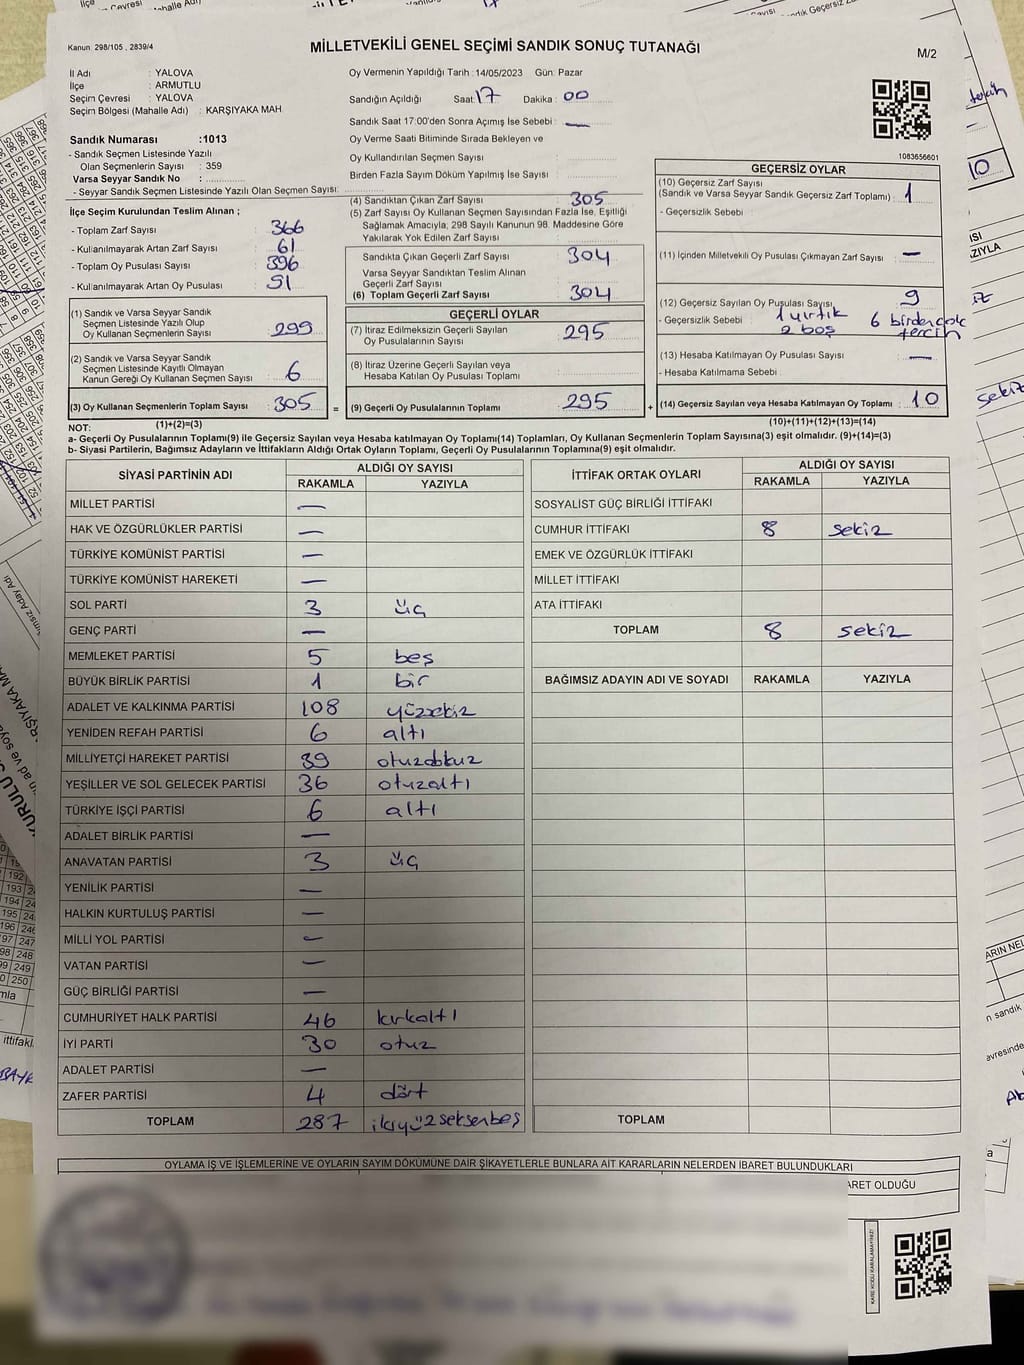 MİLLETVEKİLİ GENEL SEÇİMİ SANDIK SONUÇ TUTANAĞI
Kanun: 298/105 , 2839/4
M/2
İl Adı : YALOVA
İlçe : ARMUTLU
Seçim Çevresi : YALOVA
Seçim Bölgesi (Mahalle Adı) : KARŞIYAKA MAH
Sandık Numarası :1013
- Sandık Seçmen Listesinde Yazılı
Olan Seçmenlerin Sayısı : 359
Varsa Seyyar Sandık No :
- Seyyar Sandık Seçmen Listesinde Yazılı Olan Seçmen Sayısı:
Oy Vermenin Yapıldığı Tarih : 14/05/2023 Gün: Pazar
Sandığın Açıldığı Saat: 17 Dakika : 00
Sandık Saat 17:00'den Sonra Açımış İse Sebebi : —
Oy Verme Saati Bitiminde Sırada Bekleyen ve
Oy Kullandırılan Seçmen Sayısı
Birden Fazla Sayım Döküm Yapılmış İse Sayısı :
1083656601
İlçe Seçim Kurulundan Teslim Alınan ;
- Toplam Zarf Sayısı : 366
- Kullanılmayarak Artan Zarf Sayısı : 61
- Toplam Oy Pusulası Sayısı : 396
- Kullanılmayarak Artan Oy Pusulası : 91
(1) Sandık ve Varsa Seyyar Sandık
Seçmen Listesinde Yazılı Olup
Oy Kullanan Seçmenlerin Sayısı : 299
(2) Sandık ve Varsa Seyyar Sandık
Seçmen Listesinde Kayıtlı Olmayan
Kanun Gereği Oy Kullanan Seçmen Sayısı : 6
(3) Oy Kullanan Seçmenlerin Toplam Sayısı : 305 =
(1)+(2)=(3)
(4) Sandıktan Çıkan Zarf Sayısı : 305
(5) Zarf Sayısı Oy Kullanan Seçmen Sayısından Fazla İse, Eşitliği
Sağlamak Amacıyla; 298 Sayılı Kanunun 98. Maddesine Göre
Yakılarak Yok Edilen Zarf Sayısı :
Sandıkta Çıkan Geçerli Zarf Sayısı : 304
Varsa Seyyar Sandıktan Teslim Alınan
Geçerli Zarf Sayısı :
(6) Toplam Geçerli Zarf Sayısı : 304
GEÇERLİ OYLAR
(7) İtiraz Edilmeksizin Geçerli Sayılan
Oy Pusulalarının Sayısı : 295
(8) İtiraz Üzerine Geçerli Sayılan veya
Hesaba Katılan Oy Pusulası Toplamı :
(9) Geçerli Oy Pusulalarının Toplamı : 295 +
GEÇERSİZ OYLAR
(10) Geçersiz Zarf Sayısı
(Sandık ve Varsa Seyyar Sandık Geçersiz Zarf Toplamı) : 1
- Geçersizlik Sebebi :
(11) İçinden Milletvekili Oy Pusulası Çıkmayan Zarf Sayısı : —
(12) Geçersiz Sayılan Oy Pusulası Sayısı : 9
- Geçersizlik Sebebi : 1 yırtık 6 birden çok
2 boş tercih
(13) Hesaba Katılmayan Oy Pusulası Sayısı : —
- Hesaba Katılmama Sebebi :
(14) Geçersiz Sayılan veya Hesaba Katılmayan Oy Toplamı : 10
(10)+(11)+(12)+(13)=(14)
NOT:
a- Geçerli Oy Pusulalarının Toplamı(9) ile Geçersiz Sayılan veya Hesaba katılmayan Oy Toplamı(14) Toplamları, Oy Kullanan Seçmenlerin Toplam Sayısına(3) eşit olmalıdır. (9)+(14)=(3)
b- Siyasi Partilerin, Bağımsız Adayların ve İttifakların Aldığı Ortak Oyların Toplamı, Geçerli Oy Pusulalarının Toplamına(9) eşit olmalıdır.
SİYASİ PARTİNİN ADI ALDIĞI OY SAYISI
RAKAMLA YAZIYLA
MİLLET PARTİSİ —
HAK VE ÖZGÜRLÜKLER PARTİSİ —
TÜRKİYE KOMÜNİST PARTİSİ —
TÜRKİYE KOMÜNİST HAREKETİ —
SOL PARTİ 3 üç
GENÇ PARTİ —
MEMLEKET PARTİSİ 5 beş
BÜYÜK BİRLİK PARTİSİ 1 bir
ADALET VE KALKINMA PARTİSİ 108 yüzsekiz
YENİDEN REFAH PARTİSİ 6 altı
MİLLİYETÇİ HAREKET PARTİSİ 39 otuzdokuz
YEŞİLLER VE SOL GELECEK PARTİSİ 36 otuzaltı
TÜRKİYE İŞÇİ PARTİSİ 6 altı
ADALET BİRLİK PARTİSİ —
ANAVATAN PARTİSİ 3 üç
YENİLİK PARTİSİ —
HALKIN KURTULUŞ PARTİSİ —
MİLLİ YOL PARTİSİ —
VATAN PARTİSİ —
GÜÇ BİRLİĞİ PARTİSİ —
CUMHURİYET HALK PARTİSİ 46 kırkaltı
İYİ PARTİ 30 otuz
ADALET PARTİSİ —
ZAFER PARTİSİ 4 dört
TOPLAM 287 ikiyüzseksenbeş
İTTİFAK ORTAK OYLARI ALDIĞI OY SAYISI
RAKAMLA YAZIYLA
SOSYALİST GÜÇ BİRLİĞİ İTTİFAKI
CUMHUR İTTİFAKI 8 sekiz
EMEK VE ÖZGÜRLÜK İTTİFAKI
MİLLET İTTİFAKI
ATA İTTİFAKI
TOPLAM 8 sekiz
BAĞIMSIZ ADAYIN ADI VE SOYADI RAKAMLA YAZIYLA
TOPLAM
OYLAMA İŞ VE İŞLEMLERİNE VE OYLARIN SAYIM DÖKÜMÜNE DAİR ŞİKAYETLERLE BUNLARA AİT KARARLARIN NELERDEN İBARET BULUNDUKLARI
ARET OLDUĞU
KARE KODU KARALAMAYINIZ!